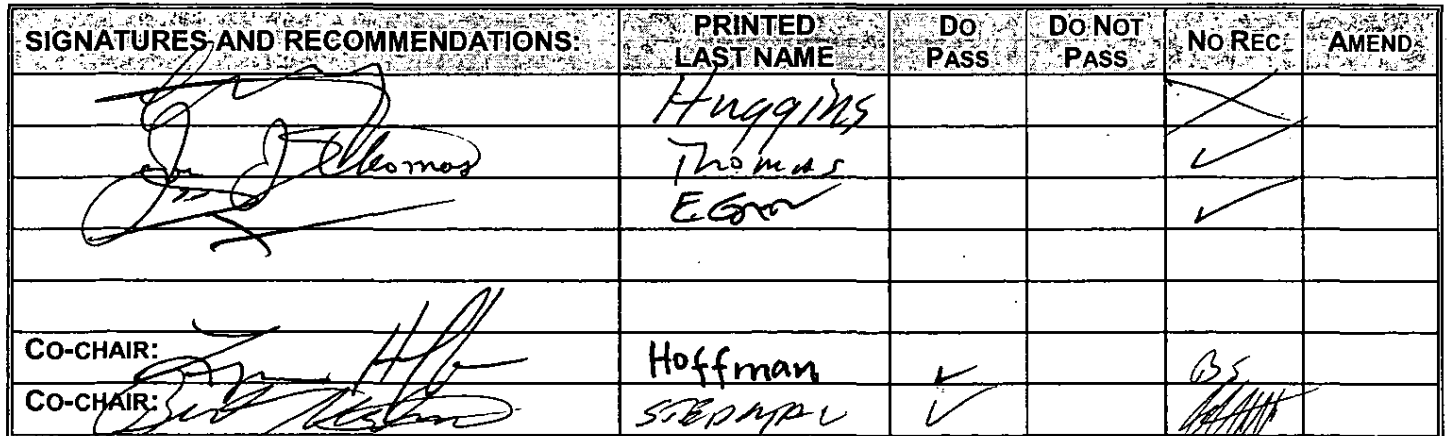 SIGNATURES AND RECOMMENDATIONS: PRINTED LAST NAME DO PASS DO NOT PASS NO REC AMEND
Huggins
Thomas Thomas ✓
✓
CO-CHAIR: Hoffman ✓ BS
CO-CHAIR: STEDMAN ✓